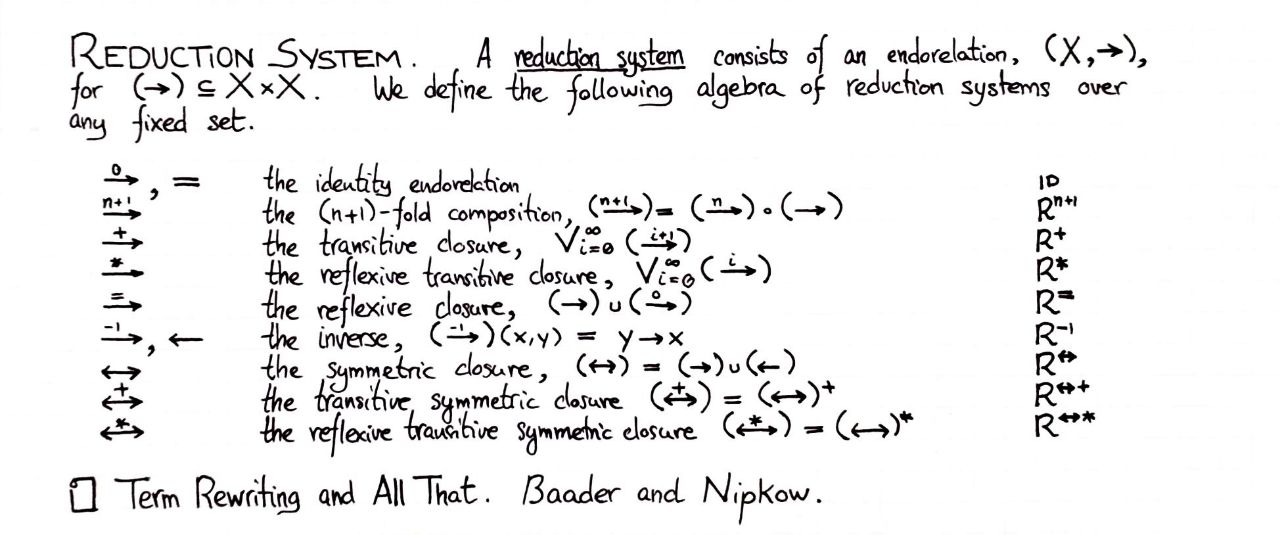 REDUCTION SYSTEM. A reduction system consists of an endorelation, (X,→),
for (→) ⊆ X×X. We define the following algebra of reduction systems over
any fixed set.
0→, = the identity endorelation ID
n+1→ the (n+1)-fold composition, (n+1→) = (n→) ∘ (→) Rⁿ⁺¹
+→ the transitive closure, ⋁i=0^∞ (i+1→) R⁺
*→ the reflexive transitive closure, ⋁i=0^∞ (i→) R*
=→ the reflexive closure, (→) ∪ (0→) R⁼
-1→, ← the inverse, (-1→)(x,y) = y→x R⁻¹
↔ the symmetric closure, (↔) = (→)∪(←) R^↔
+↔ the transitive symmetric closure (+↔) = (↔)⁺ R^↔+
*↔ the reflexive transitive symmetric closure (*↔) = (↔)* R^↔*
Term Rewriting and All That. Baader and Nipkow.